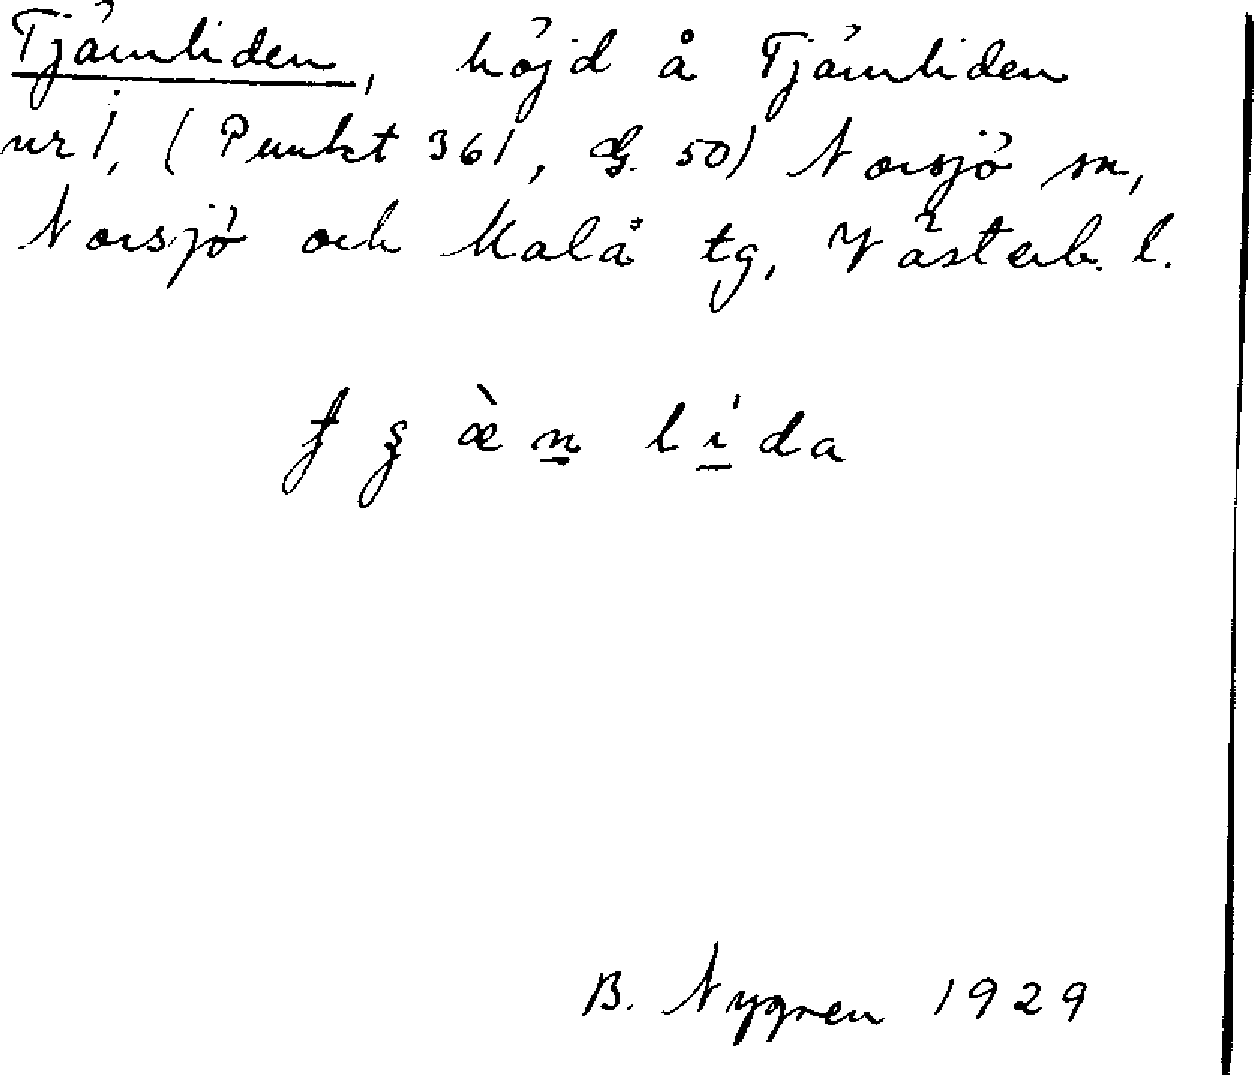 Tjämliden, höjd å Tjämliden
nr 1, (Punkt 361, G. 50) Norsjö sn,
Norsjö och Malå tg, Västerb. l.
lída
B. Nygren 1929